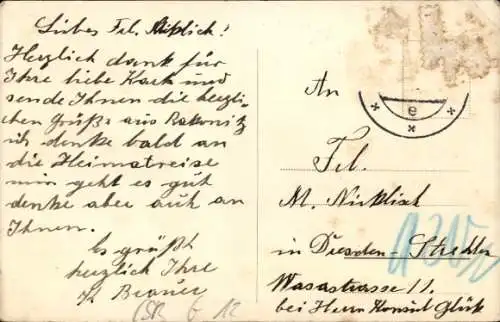 Liebes Frl. Nicklich!
Herzlich dank für
Ihre liebe Karte und
sende Ihnen die herzli-
chen Grüße aus Rakonitz
ich denke bald an
die Heimatreise
mir geht es gut
denke aber auch an
Ihnen.
Es grüßt
herzlich Ihre
Brauer
An
Frl.
M. Nicklich
in Dresden-Strehlen
Wasastrasse 11.
bei Herrn Konsul Glück
e